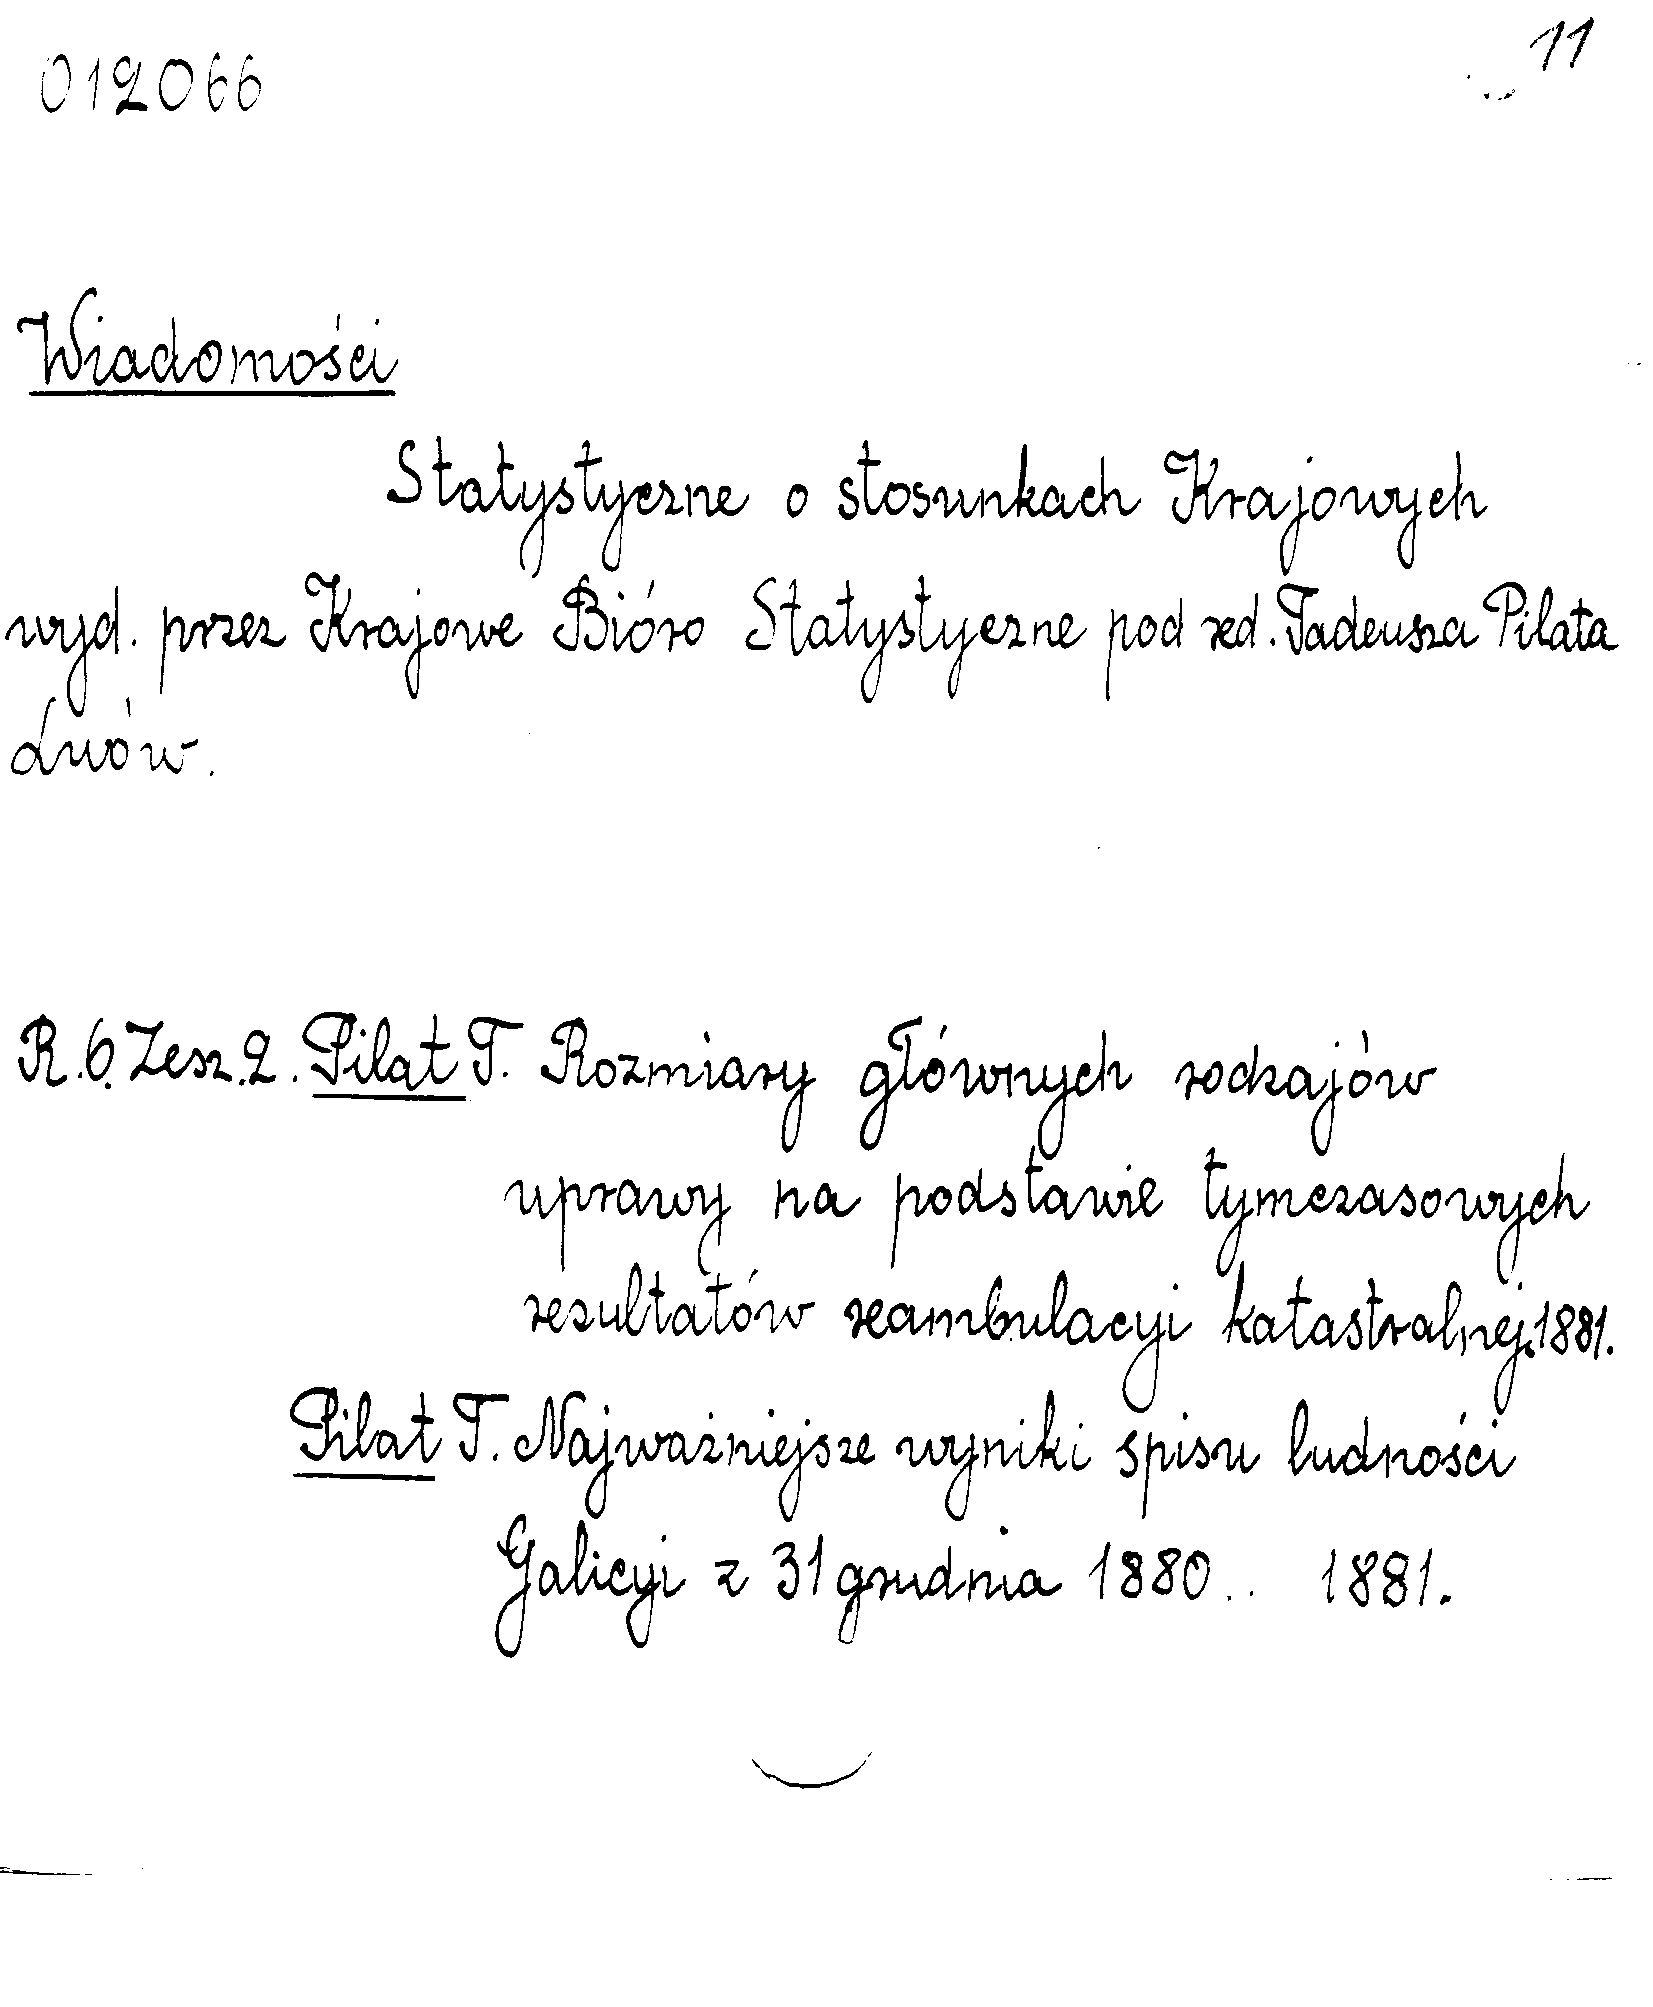 012066
11
Wiadomości
Statystyczne o stosunkach Krajowych
wyd. przez Krajowe Bióro Statystyczne pod red. Tadeusza Pilata
Lwów.
R.6. Zesz.2. Pilat T. Rozmiary głównych rodzajów
uprawy na podstawie tymczasowych
rezultatów reambulacyi katastralnej.1881.
Pilat T. Najważniejsze wyniki spisu ludności
Galicyi z 31 grudnia 1880.. 1881.